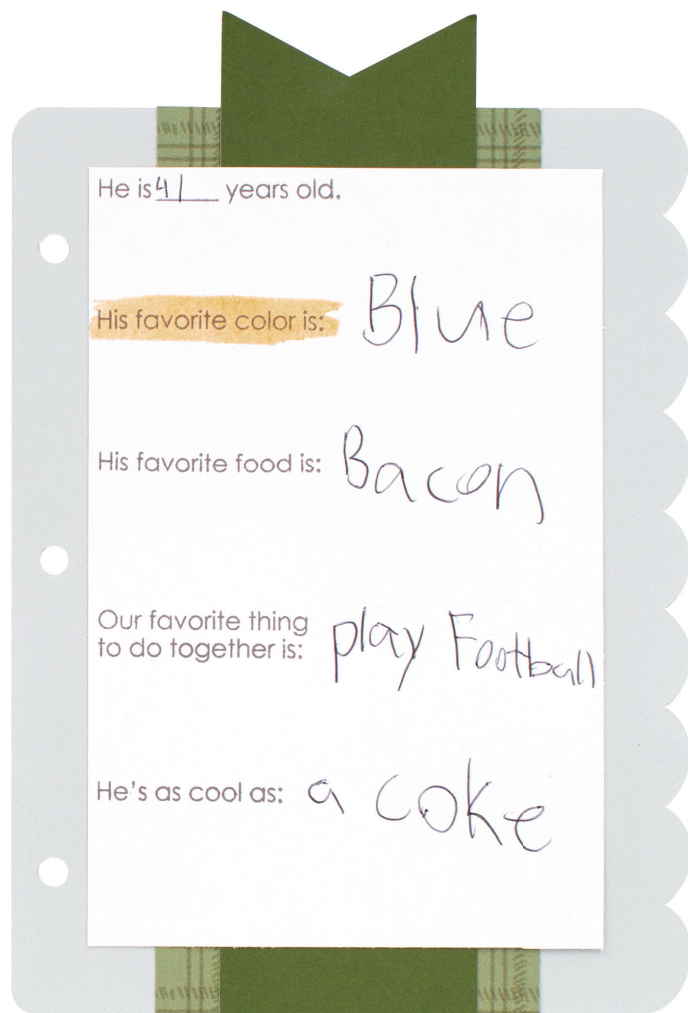 He is 41 years old.
His favorite color is: Blue
His favorite food is: Bacon
Our favorite thing
to do together is: play Football
He's as cool as: a coke